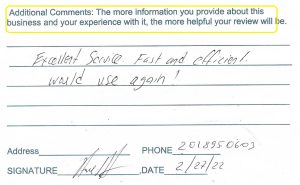 Additional Comments: The more information you provide about this
business and your experience with it, the more helpful your review will be.
Excellent Service. Fast and efficient.
would use again!
Address PHONE 2018950603
SIGNATURE ,DATE 2/27/22